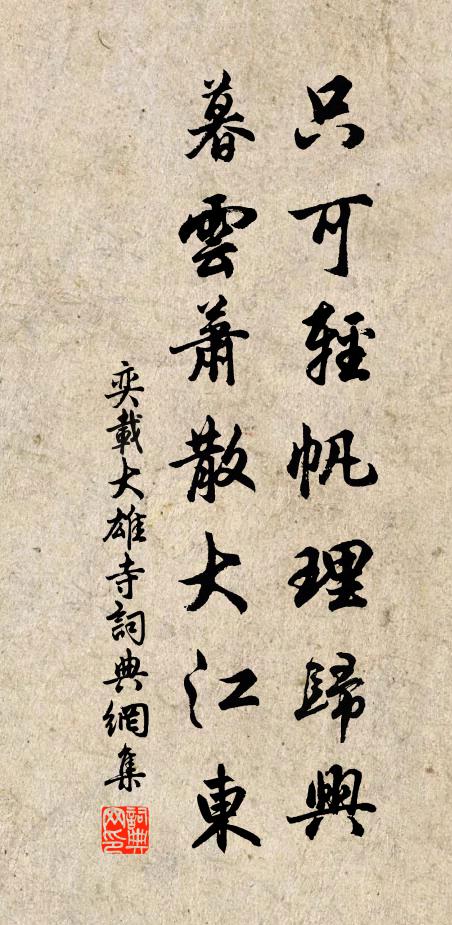 只可輕帆理歸興
暮雲蕭散大江東
奕載大雄寺詞典網集
詞典网印